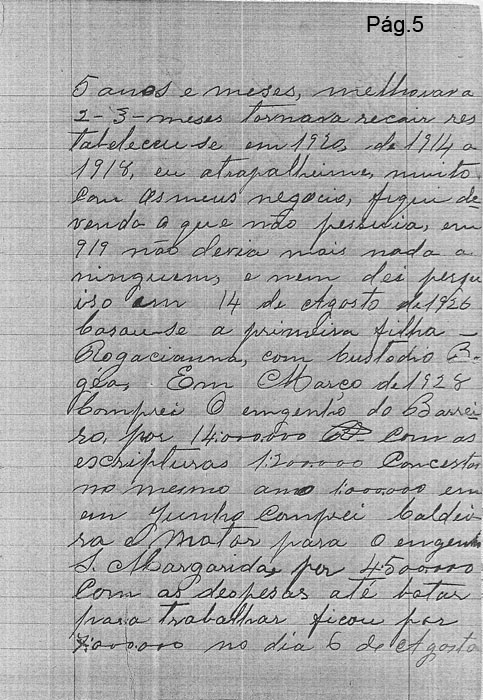 Pág.5
5 anos e meses, melhorava
2-3-meses tornava recair res
tabeleceu-se em 1920, de 1914 a
1918, eu atrapalheime, muito
com os meus negocio, fiquei de
vendo o que não pessuia, em
919 não devia mais nada a
ninguem, e nem dei perju
iso em 14 de Agosto de 1926
Casou-se a primeira filha -
Rogacianna, com Custodio
Em Março de 1928
Comprei O emgenho do Barrei
ro, por 14:000.000 com as
escripturas 1:200.000 Concertos
no mesmo ano 1:000.000 em
em Junho Comprei Caldei
ra e Motor para O engenho
S. Margarida, por 4:500.000
Com as despesas até botar
para trabalhar ficou por
7:000.000 no dia 6 de Agosto